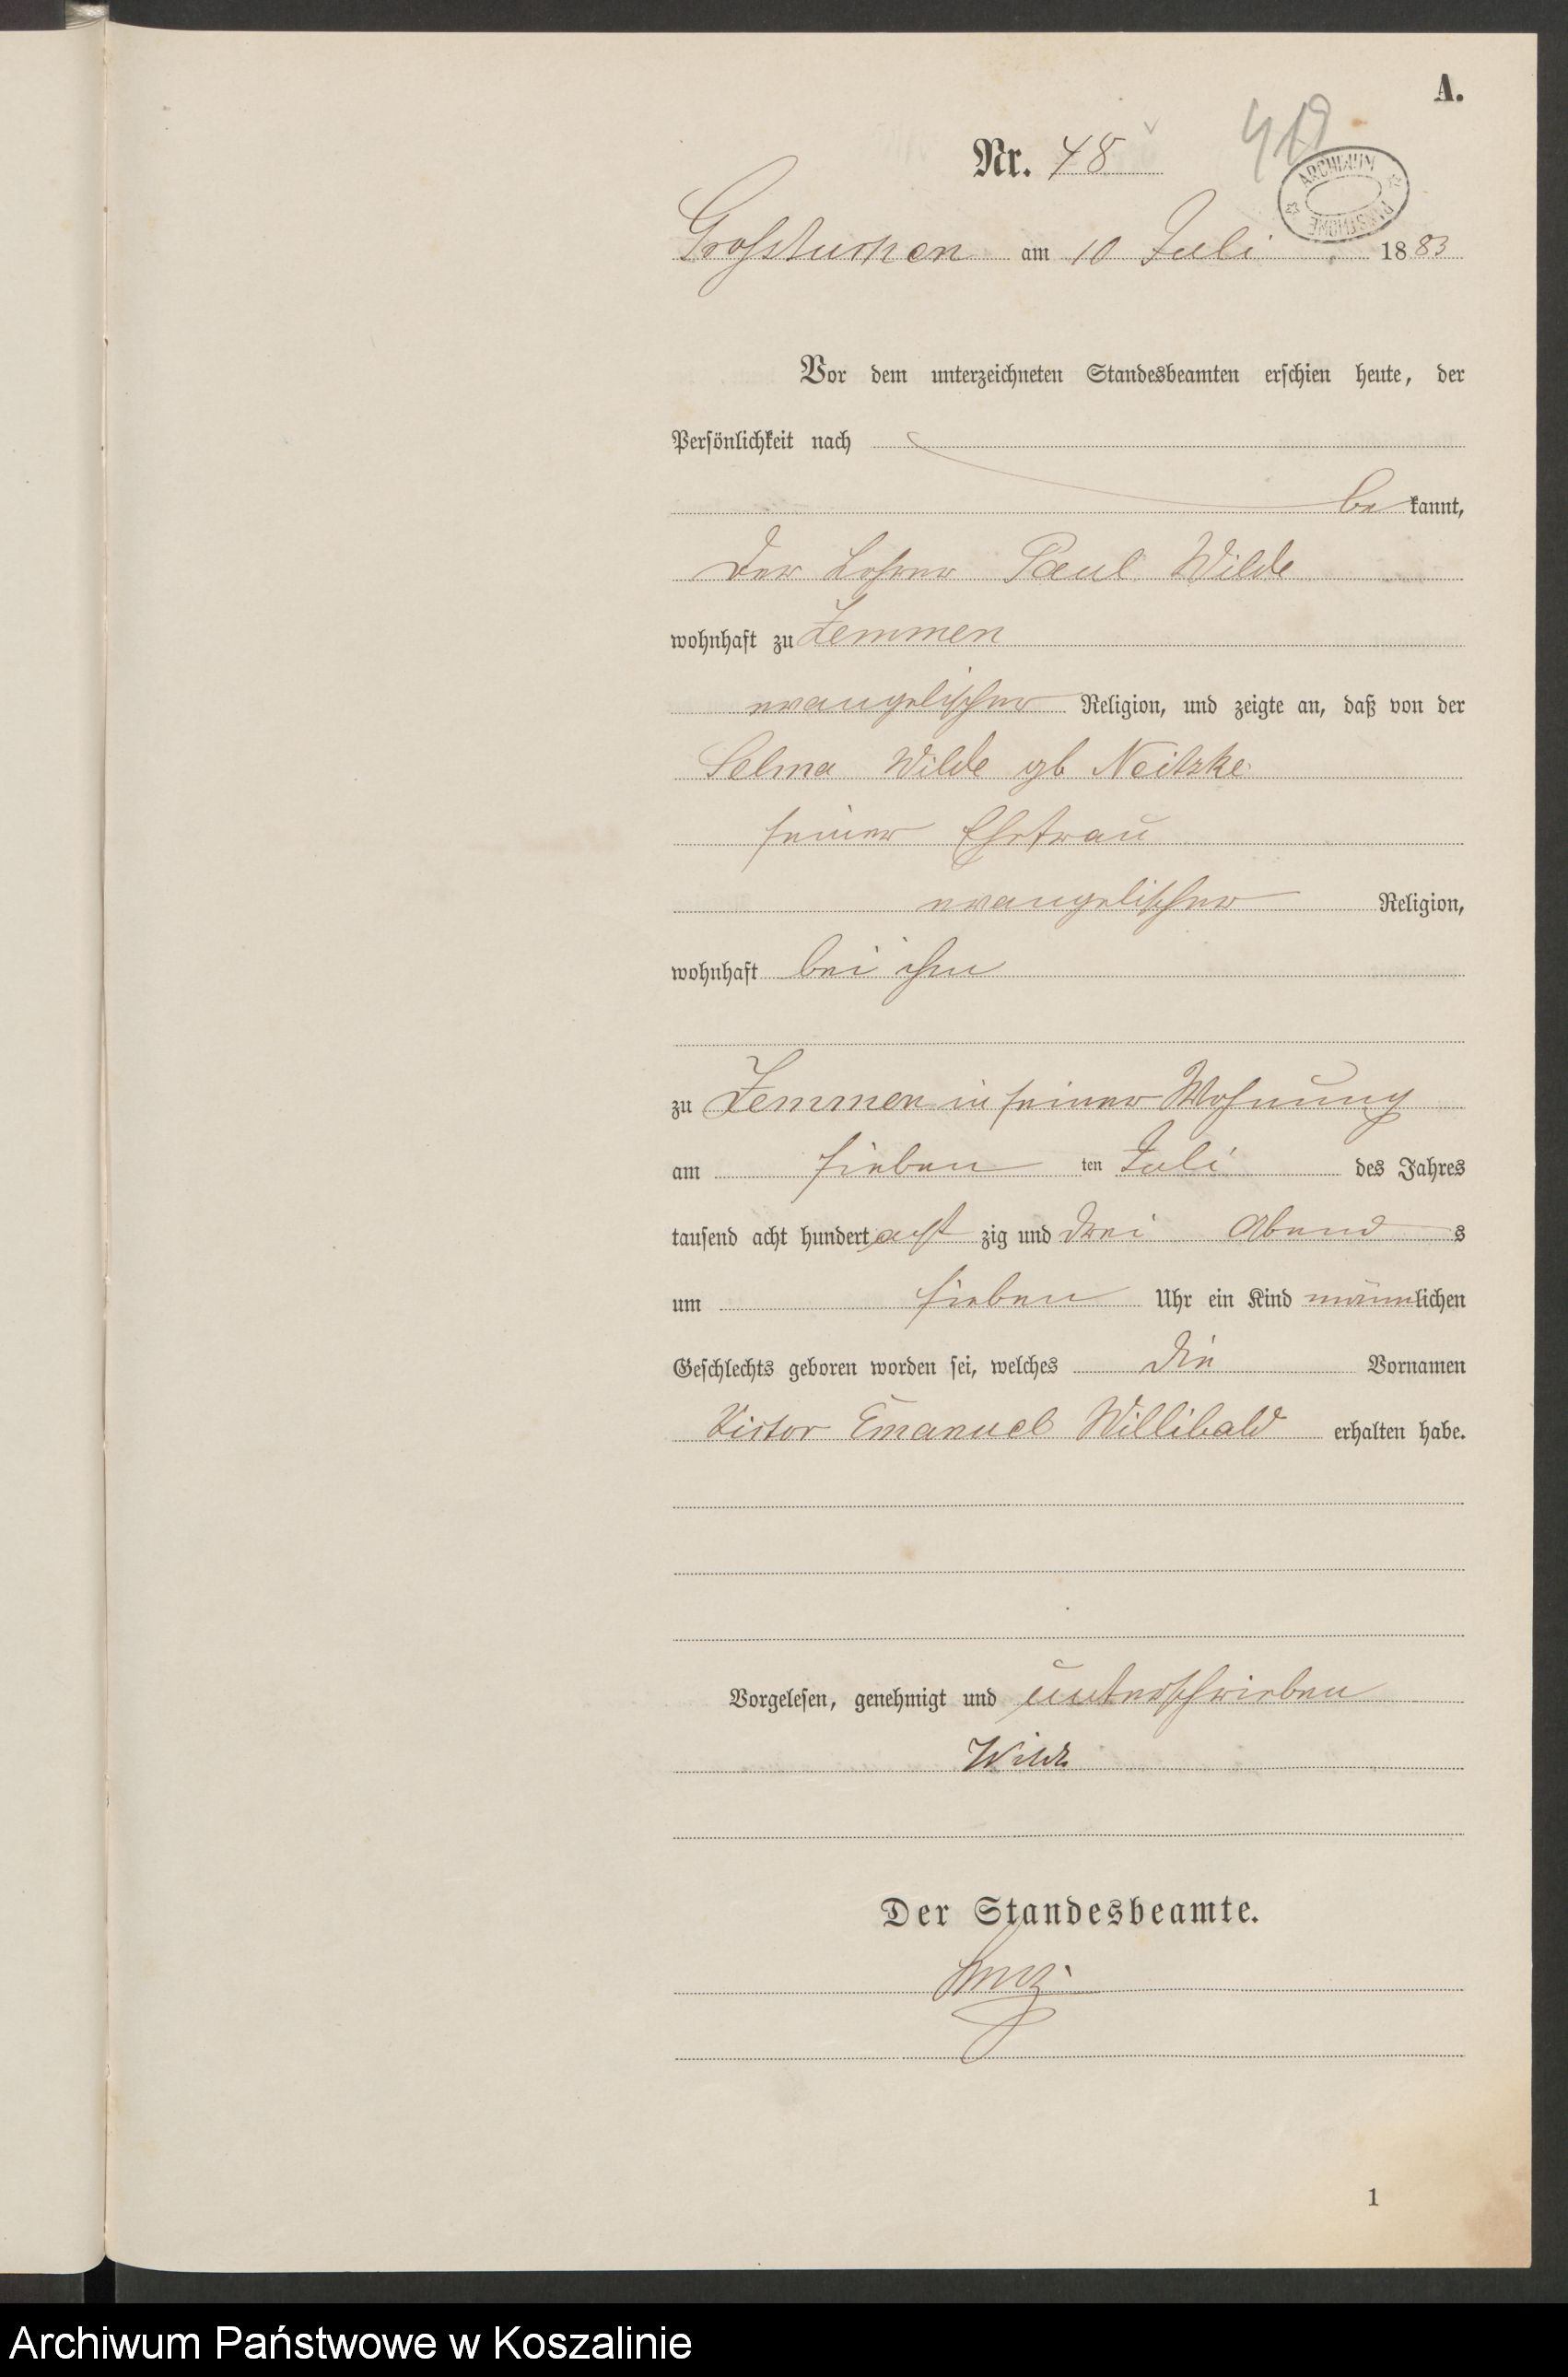 A.
Nr. 48
419
ARCHIWUM PAŃSTWOWE
Großtuchen am 10 Juli 1883
Vor dem unterzeichneten Standesbeamten erschien heute, der
Persönlichkeit nach
bekannt,
der Lehrer Paul Wilde
wohnhaft zu Zemmen
evangelischer Religion, und zeigte an, daß von der
Selma Wilde gb Neitzke
seiner Ehefrau
evangelischer Religion,
wohnhaft bei ihm
zu Zemmen in seiner Wohnung
am sieben ten Juli des Jahres
tausend acht hundert acht zig und drei Abends
um sieben Uhr ein Kind männlichen
Geschlechts geboren worden sei, welches die Vornamen
Victor Emanuel Willibald erhalten habe.
Vorgelesen, genehmigt und unterschrieben
Wilde
Der Standesbeamte.
1
Archiwum Państwowe w Koszalinie